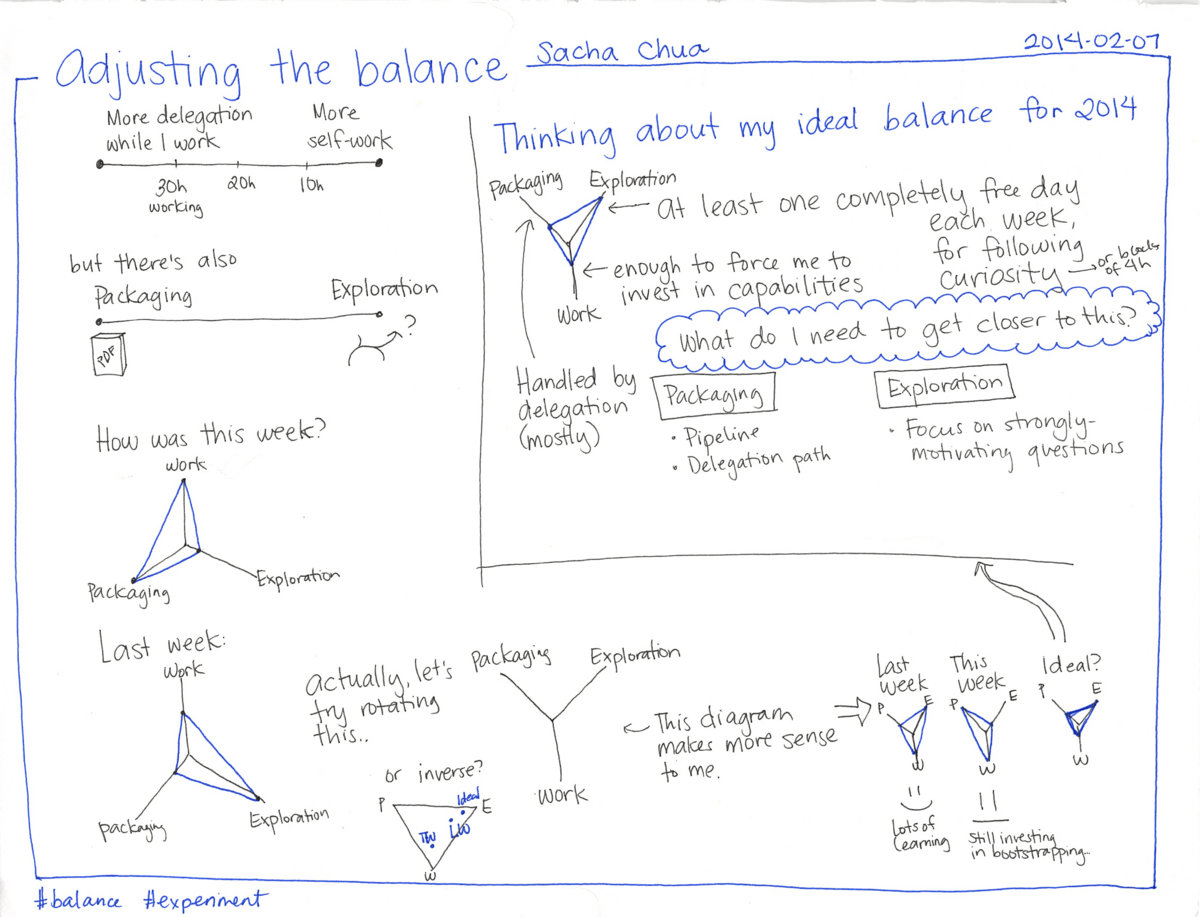 Adjusting the balance
Sacha Chua
2014-02-07
More delegation
while I work
More
self-work
30h
working
20h
10h
but there's also
Packaging
Exploration
PDF
?
How was this week?
Work
Packaging
Exploration
Last week:
Work
Packaging
Exploration
Actually, let's
try rotating
this..
Packaging
Exploration
Work
or inverse?
P
E
W
Ideal
TW
LW
This diagram
makes more sense
to me.
Last
week
P
E
W
Lots of
learning
This
week
P
E
W
Still investing
in bootstrapping...
Ideal?
P
E
W
Thinking about my ideal balance for 2014
Packaging
Exploration
Work
At least one completely free day
each week,
for following
curiosity
or blocks
of 4h
enough to force me to
invest in capabilities
What do I need to get closer to this?
Handled by
delegation
(mostly)
Packaging
• Pipeline
• Delegation path
Exploration
• Focus on strongly-
motivating questions
#balance #experiment